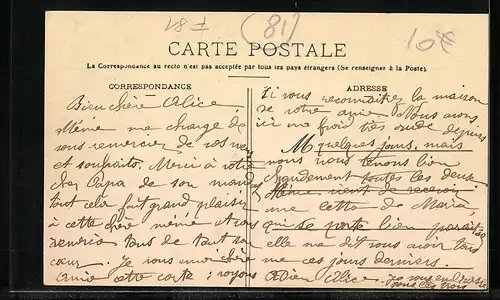 28 (81) 10€
CARTE POSTALE
La Correspondance au recto n'est pas acceptée par tous les pays étrangers (Se renseigner à la Poste)
CORRESPONDANCE
Bien chère Alice,
Mémé me charge de
vous remercier de vos vœux
et souhaits. Merci à votre
cher Papa de son mandat
tout cela fait grand plaisir
à cette chère mémé et vous
remercie tous de tout son
cœur. Je vous une chère
Amie cette carte : voyons
ADRESSE
si vous reconnaîtrez la maison
de votre amie. Nous avons
ici un froid très rude depuis
quelques jours, mais
nous nous tenons bien
chaudement toutes les deux
Mémé vient de recevoir
une lettre de Maria,
qui se porte bien paraît-il
elle me dit vous avoir tous
ces jours derniers.
Adieu Alice. Je vous embrasse
tous les trois